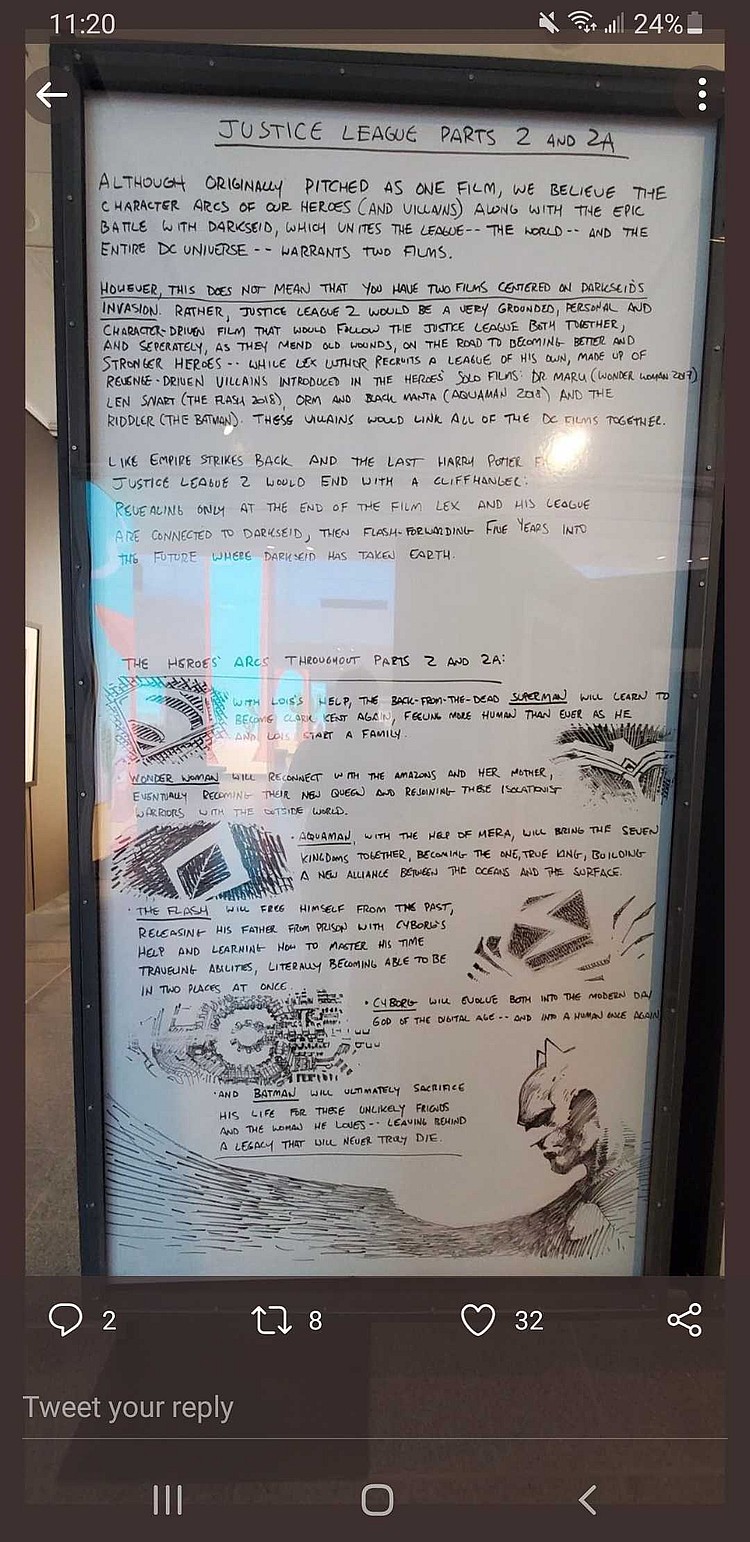 11:20
24%
JUSTICE LEAGUE PARTS 2 AND 2A
ALTHOUGH ORIGINALLY PITCHED AS ONE FILM, WE BELIEVE THE
CHARACTER ARCS OF OUR HEROES (AND VILLAINS) ALONG WITH THE EPIC
BATTLE WITH DARKSEID, WHICH UNITES THE LEAGUE-- THE WORLD-- AND THE
ENTIRE DC UNIVERSE -- WARRANTS TWO FILMS.
HOWEVER, THIS DOES NOT MEAN THAT YOU HAVE TWO FILMS CENTERED ON DARKSEID'S
INVASION. RATHER, JUSTICE LEAGUE 2 WOULD BE A VERY GROUNDED, PERSONAL AND
CHARACTER-DRIVEN FILM THAT WOULD FOLLOW THE JUSTICE LEAGUE BOTH TOGETHER,
AND SEPERATELY, AS THEY MEND OLD WOUNDS, ON THE ROAD TO BECOMING BETTER AND
STRONGER HEROES -- WHILE LEX LUTHOR RECRUITS A LEAGUE OF HIS OWN, MADE UP OF
REVENGE-DRIVEN VILLAINS INTRODUCED IN THE HEROES' SOLO FILMS: DR. MARU (WONDER WOMAN 2017)
LEN SNART (THE FLASH 2018), ORM AND BLACK MANTA (AQUAMAN 2018) AND THE
RIDDLER (THE BATMAN). THESE VILLAINS WOULD LINK ALL OF THE DC FILMS TOGETHER.
LIKE EMPIRE STRIKES BACK AND THE LAST HARRY POTTER
JUSTICE LEAGUE 2 WOULD END WITH A CLIFFHANGER:
REVEALING ONLY AT THE END OF THE FILM LEX AND HIS LEAGUE
ARE CONNECTED TO DARKSEID, THEN FLASH-FORWARDING FIVE YEARS INTO
THE FUTURE WHERE DARKSEID HAS TAKEN EARTH.
THE HEROES' ARCS THROUGHOUT PARTS 2 AND 2A:
WITH LOIS'S HELP, THE BACK-FROM-THE-DEAD SUPERMAN WILL LEARN TO
BECOME CLARK KENT AGAIN, FEELING MORE HUMAN THAN EVER AS HE
AND LOIS START A FAMILY.
· WONDER WOMAN WILL RECONNECT WITH THE AMAZONS AND HER MOTHER,
EVENTUALLY BECOMING THEIR NEW QUEEN AND REJOINING THESE ISOLATIONIST
WARRIORS WITH THE OUTSIDE WORLD.
· AQUAMAN, WITH THE HELP OF MERA, WILL BRING THE SEVEN
KINGDOMS TOGETHER, BECOMING THE ONE, TRUE KING, BUILDING
A NEW ALLIANCE BETWEEN THE OCEANS AND THE SURFACE.
· THE FLASH WILL FREE HIMSELF FROM THE PAST,
RELEASING HIS FATHER FROM PRISON WITH CYBORG'S
HELP AND LEARNING HOW TO MASTER HIS TIME
TRAVELING ABILITIES, LITERALLY BECOMING ABLE TO BE
IN TWO PLACES AT ONCE.
· CYBORG WILL EVOLVE BOTH INTO THE MODERN DAY
GOD OF THE DIGITAL AGE -- AND INTO A HUMAN ONCE AGAIN
· AND BATMAN WILL ULTIMATELY SACRIFICE
HIS LIFE FOR THESE UNLIKELY FRIENDS
AND THE WOMAN HE LOVES -- LEAVING BEHIND
A LEGACY THAT WILL NEVER TRULY DIE.
2
8
32
Tweet your reply